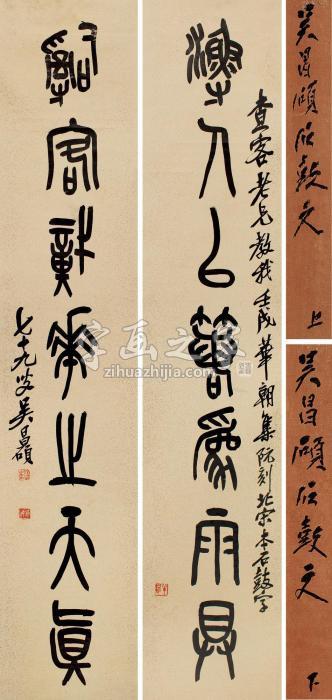 吳昌碩石鼓文 上
吳昌碩石鼓文 下
查客老兄教我壬戌華朝集阮刻北宋本石鼓字
人以為雨具
客華之天真
七十九叟吳昌碩
字画之家
zihuazhijia.com